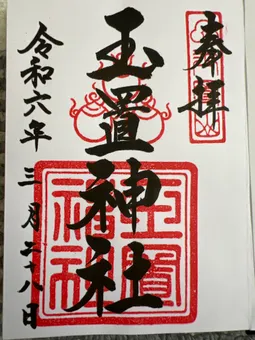 奉拝
玉置神社
令和六年三月二十八日
玉置神社